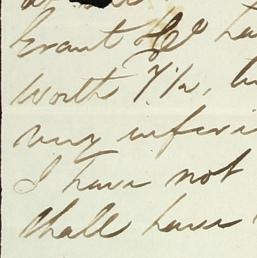 Grant & Co ha
Worth 7½, bu
very inferi
I have not
shall have